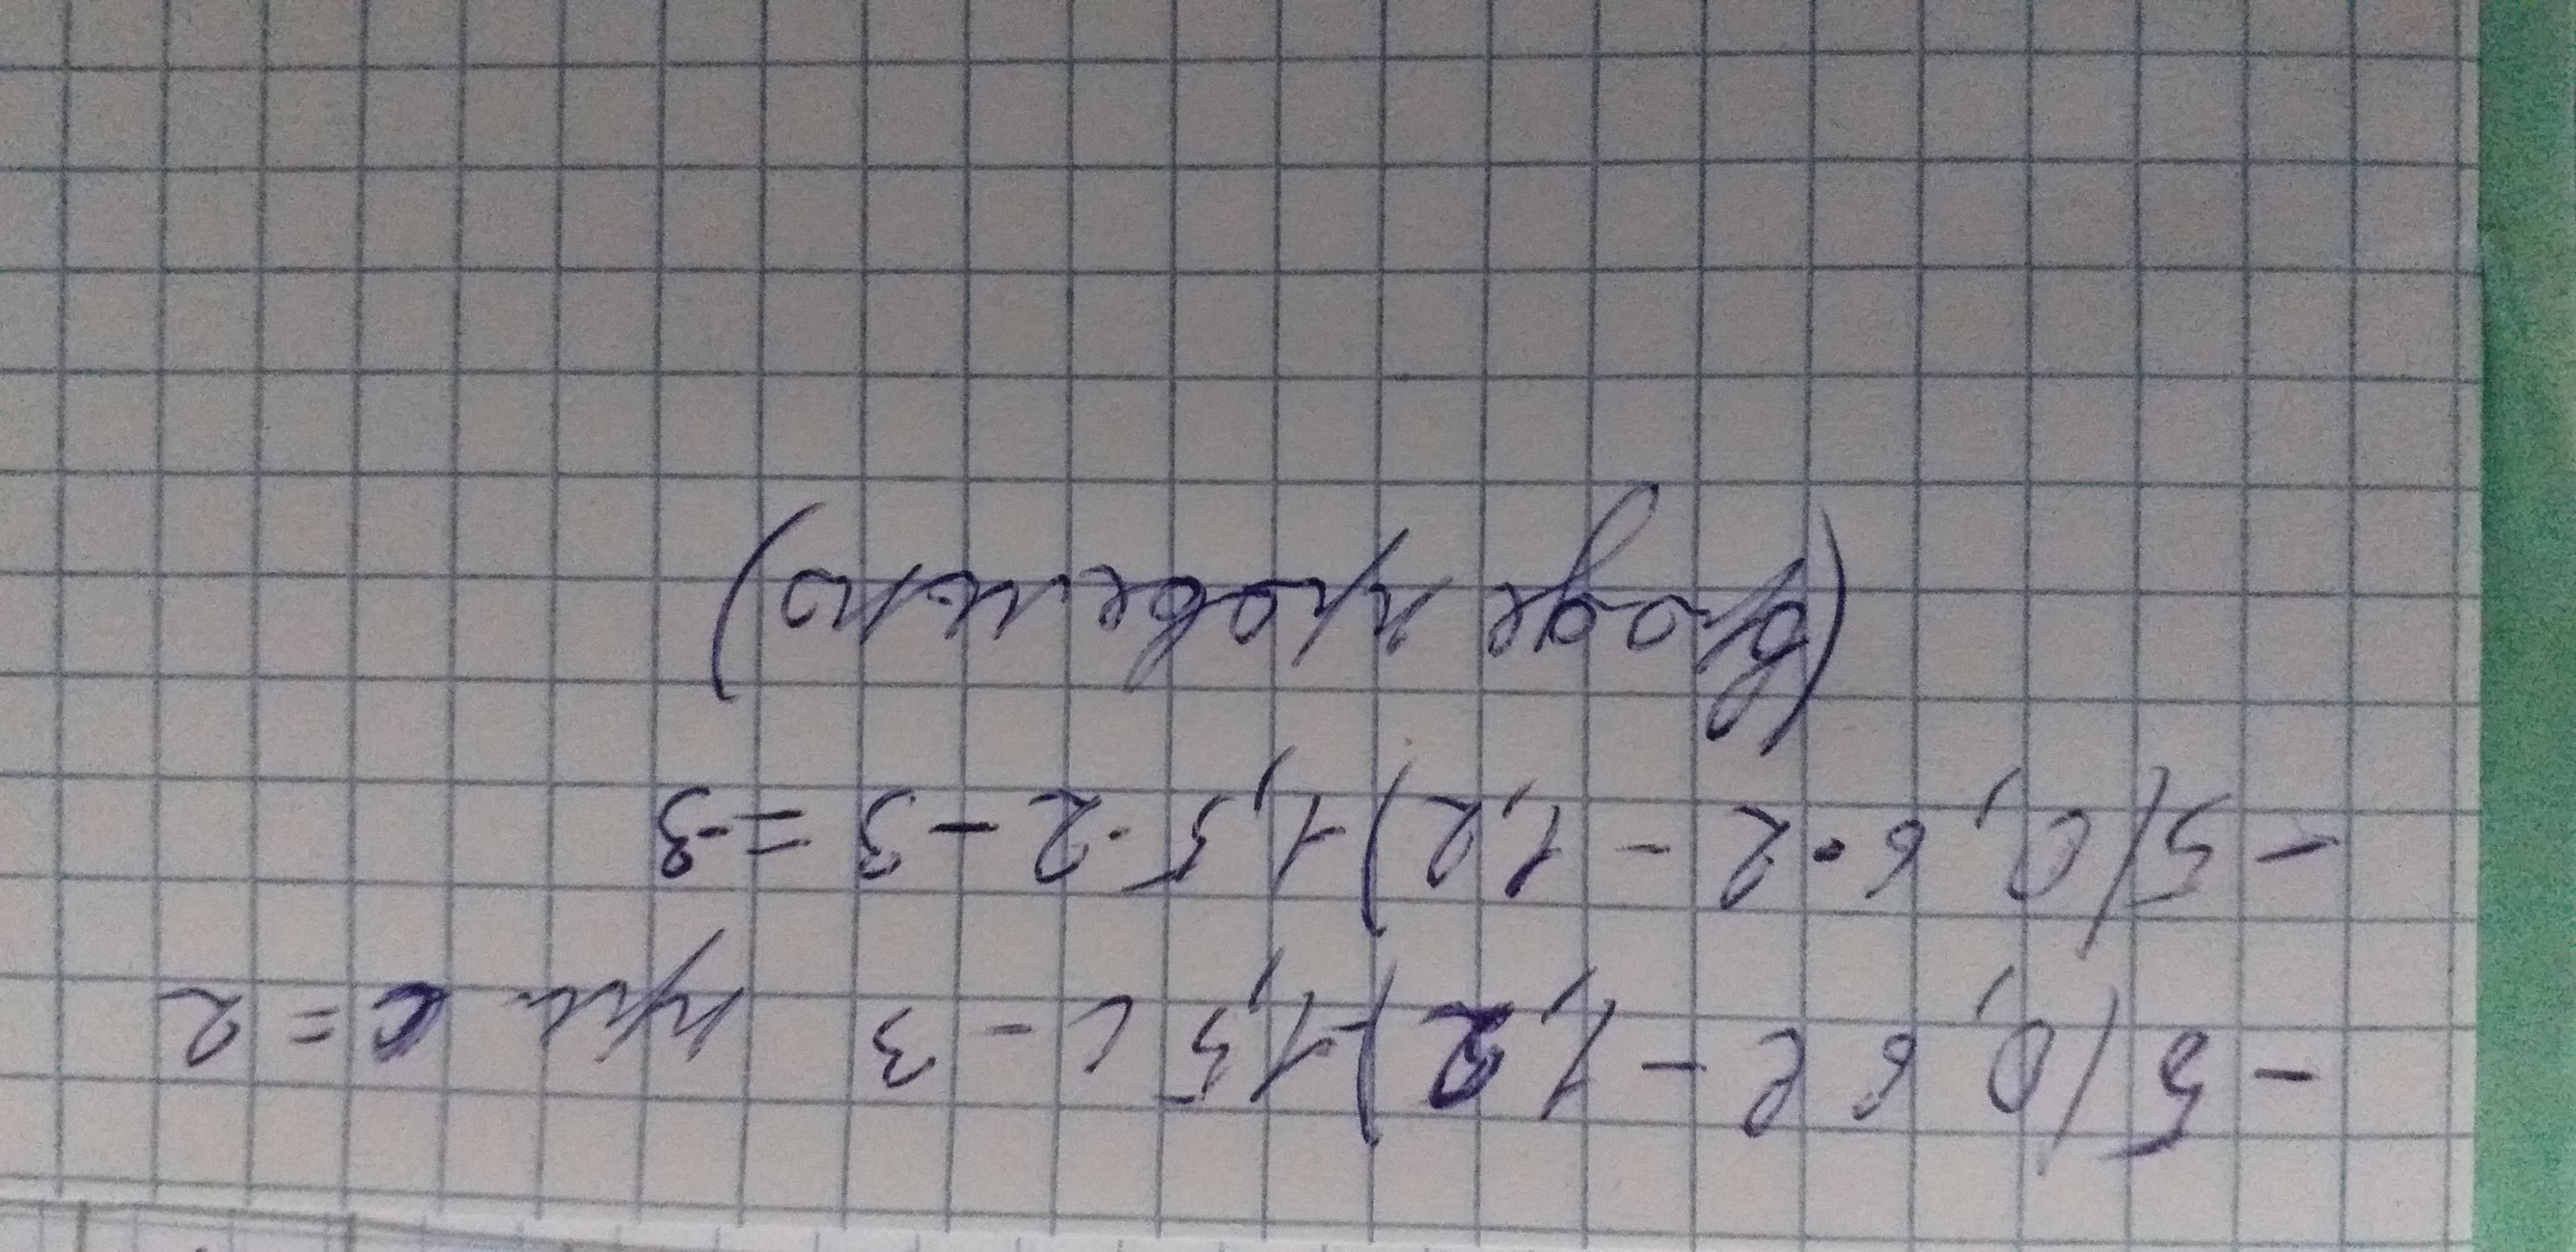 -5(0,6c-1,2)-1,5c-3 при c=2
-5(0,6·2-1,2)-1,5·2-3=-3
(вроде правельно)